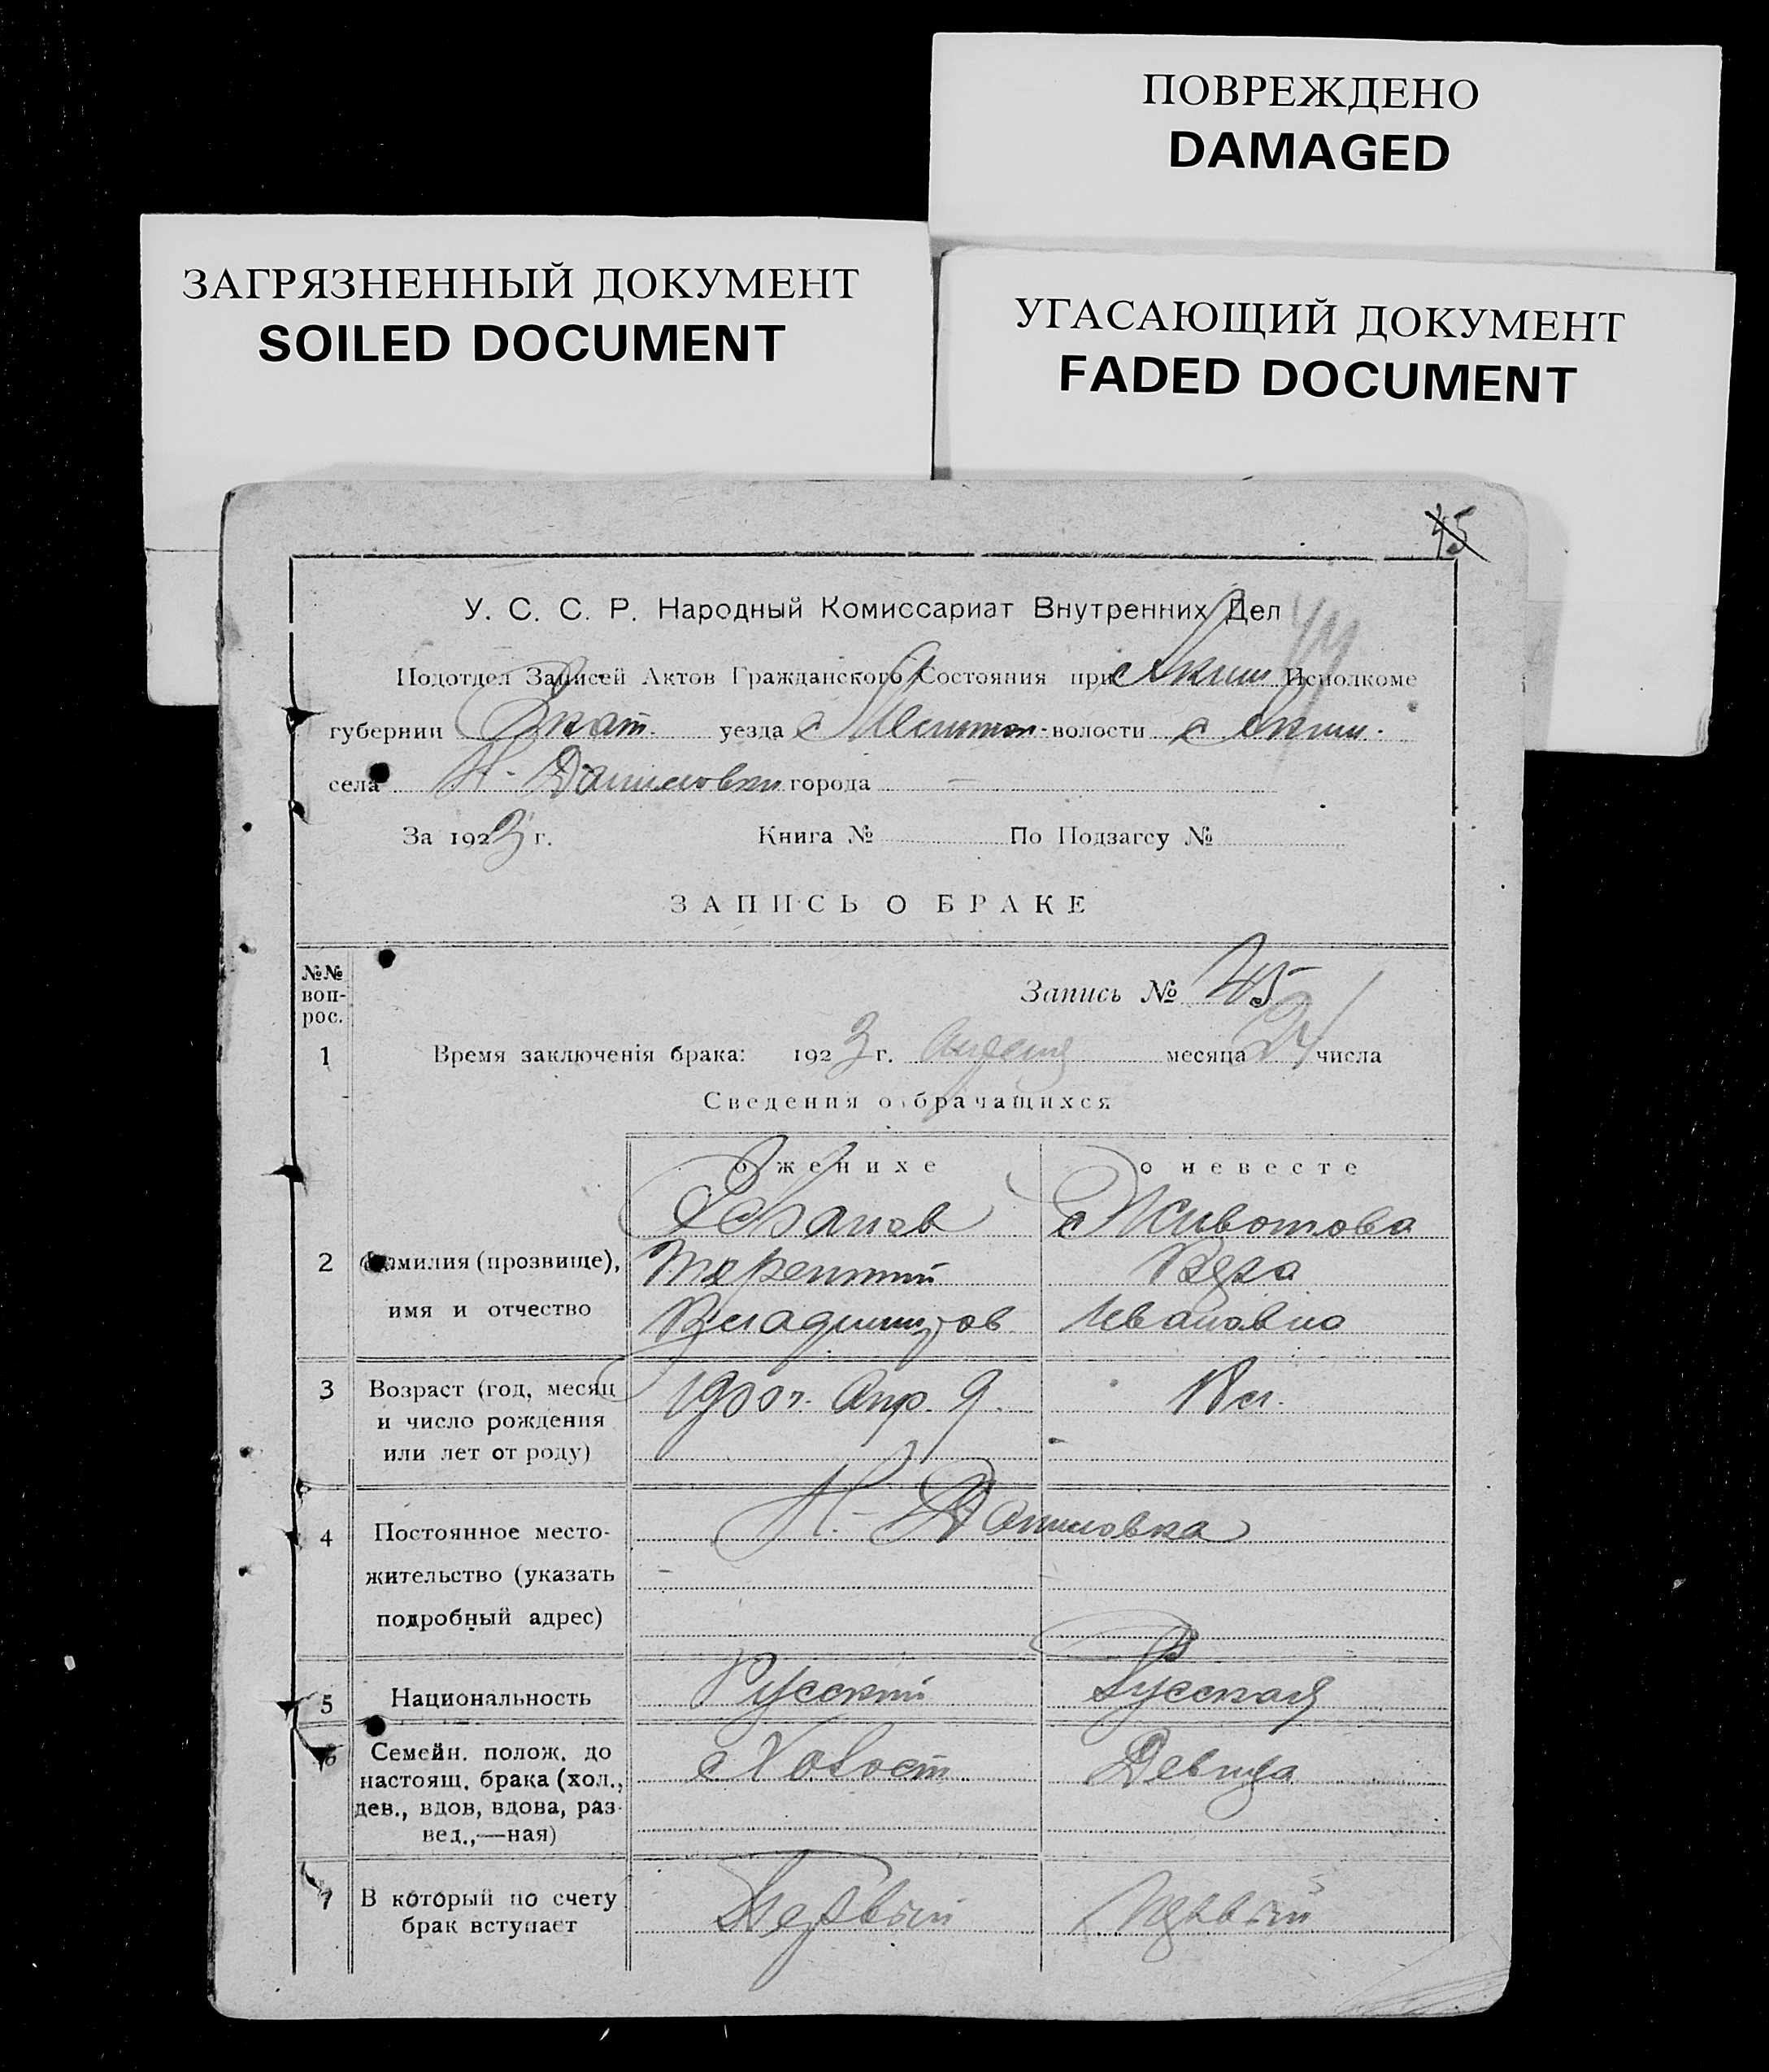 ПОВРЕЖДЕНО
DAMAGED
ЗАГРЯЗНЕННЫЙ ДОКУМЕНТ
SOILED DOCUMENT
УГАСАЮЩИЙ ДОКУМЕНТ
FADED DOCUMENT
45
У. С. С. Р. Народный Комиссариат Внутренних Дел
Подотдел Записей Актов Гражданского Состояния при Исполкоме
губернии Екат. уезда волости
села Н-Даниловки города —
За 1923 г. Книга № По Подзагсу №
ЗАПИСЬ О БРАКЕ
№№ воп-рос.
Запись № 45
1 Время заключенія брака: 1923 г. месяца 24 числа
Сведения о брачащихся
о женихе о невесте
Животова
2 Фамилия (прозвище), Терентий Вера
имя и отчество Владимиров Ивановна
3 Возраст (год, месяц 1900 г. Апр. 9. 18 л.
и число рождения
или лет от роду)
4 Постоянное место- Н.-Даниловка
жительство (указать
подробный адрес)
5 Национальность Русский Русская
6 Семейн. полож. до Холост Девица
настоящ. брака (хол.,
дев., вдов, вдова, раз-
вед.,—ная)
7 В который по счету Первый Первый
брак вступает